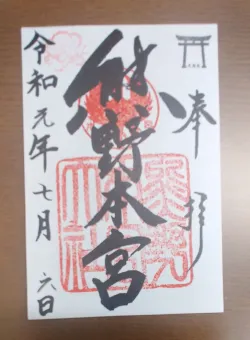 奉拝
熊野本宮
令和元年七月六日